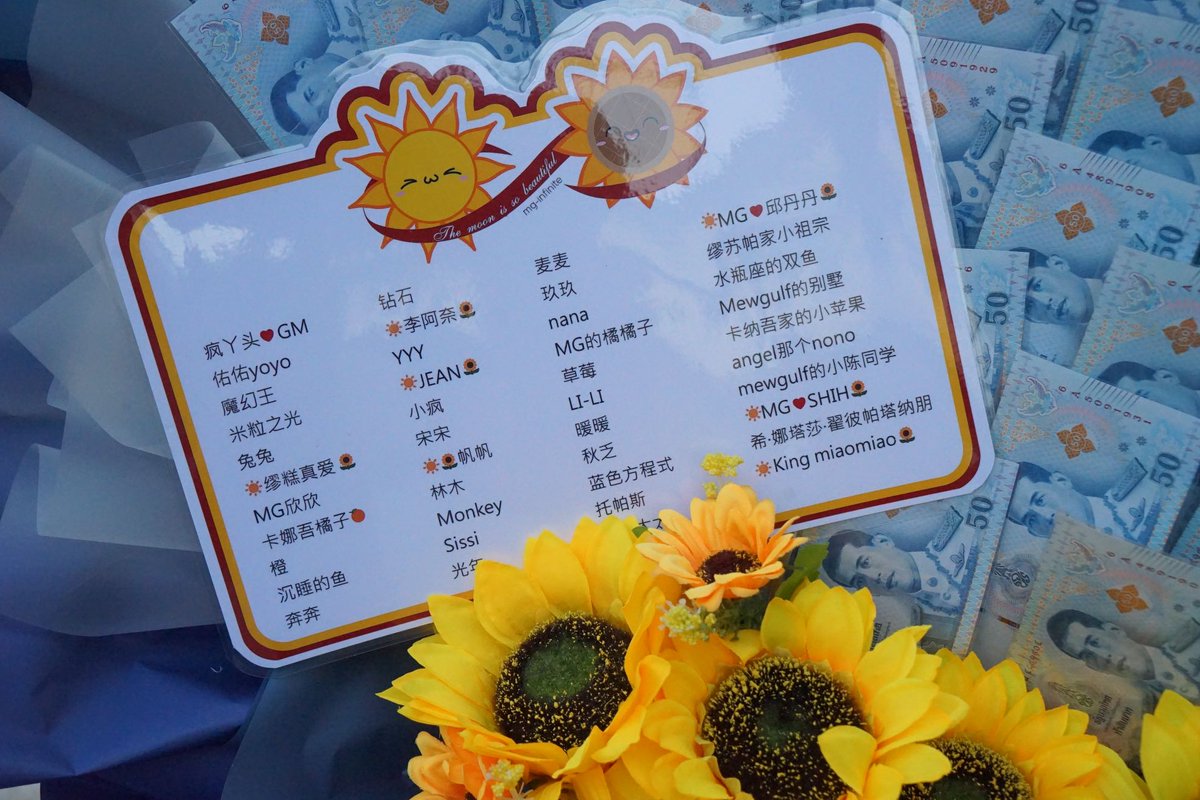 The moon is so beautiful
mg-infinite
疯丫头❤GM
佑佑yoyo
魔幻王
米粒之光
兔兔
☀缪糕真爱🌻
MG欣欣
卡娜吾橘子🍊
橙
沉睡的鱼
奔奔
钻石
☀李阿奈🌻
YYY
☀JEAN🌻
小疯
宋宋
☀🌻帆帆
林木
Monkey
Sissi
光年
麦麦
玖玖
nana
MG的橘橘子
草莓
LI-LI
暖暖
秋乏
蓝色方程式
托帕斯
☀MG❤邱丹丹🌻
缪苏帕家小祖宗
水瓶座的双鱼
Mewgulf的别墅
卡纳吾家的小苹果
angel那个nono
mewgulf的小陈同学
☀MG❤SHIH🌻
希·娜塔莎·翟彼帕塔纳朋
☀King miaomiao🌻
50
50
50
50
50
50
50